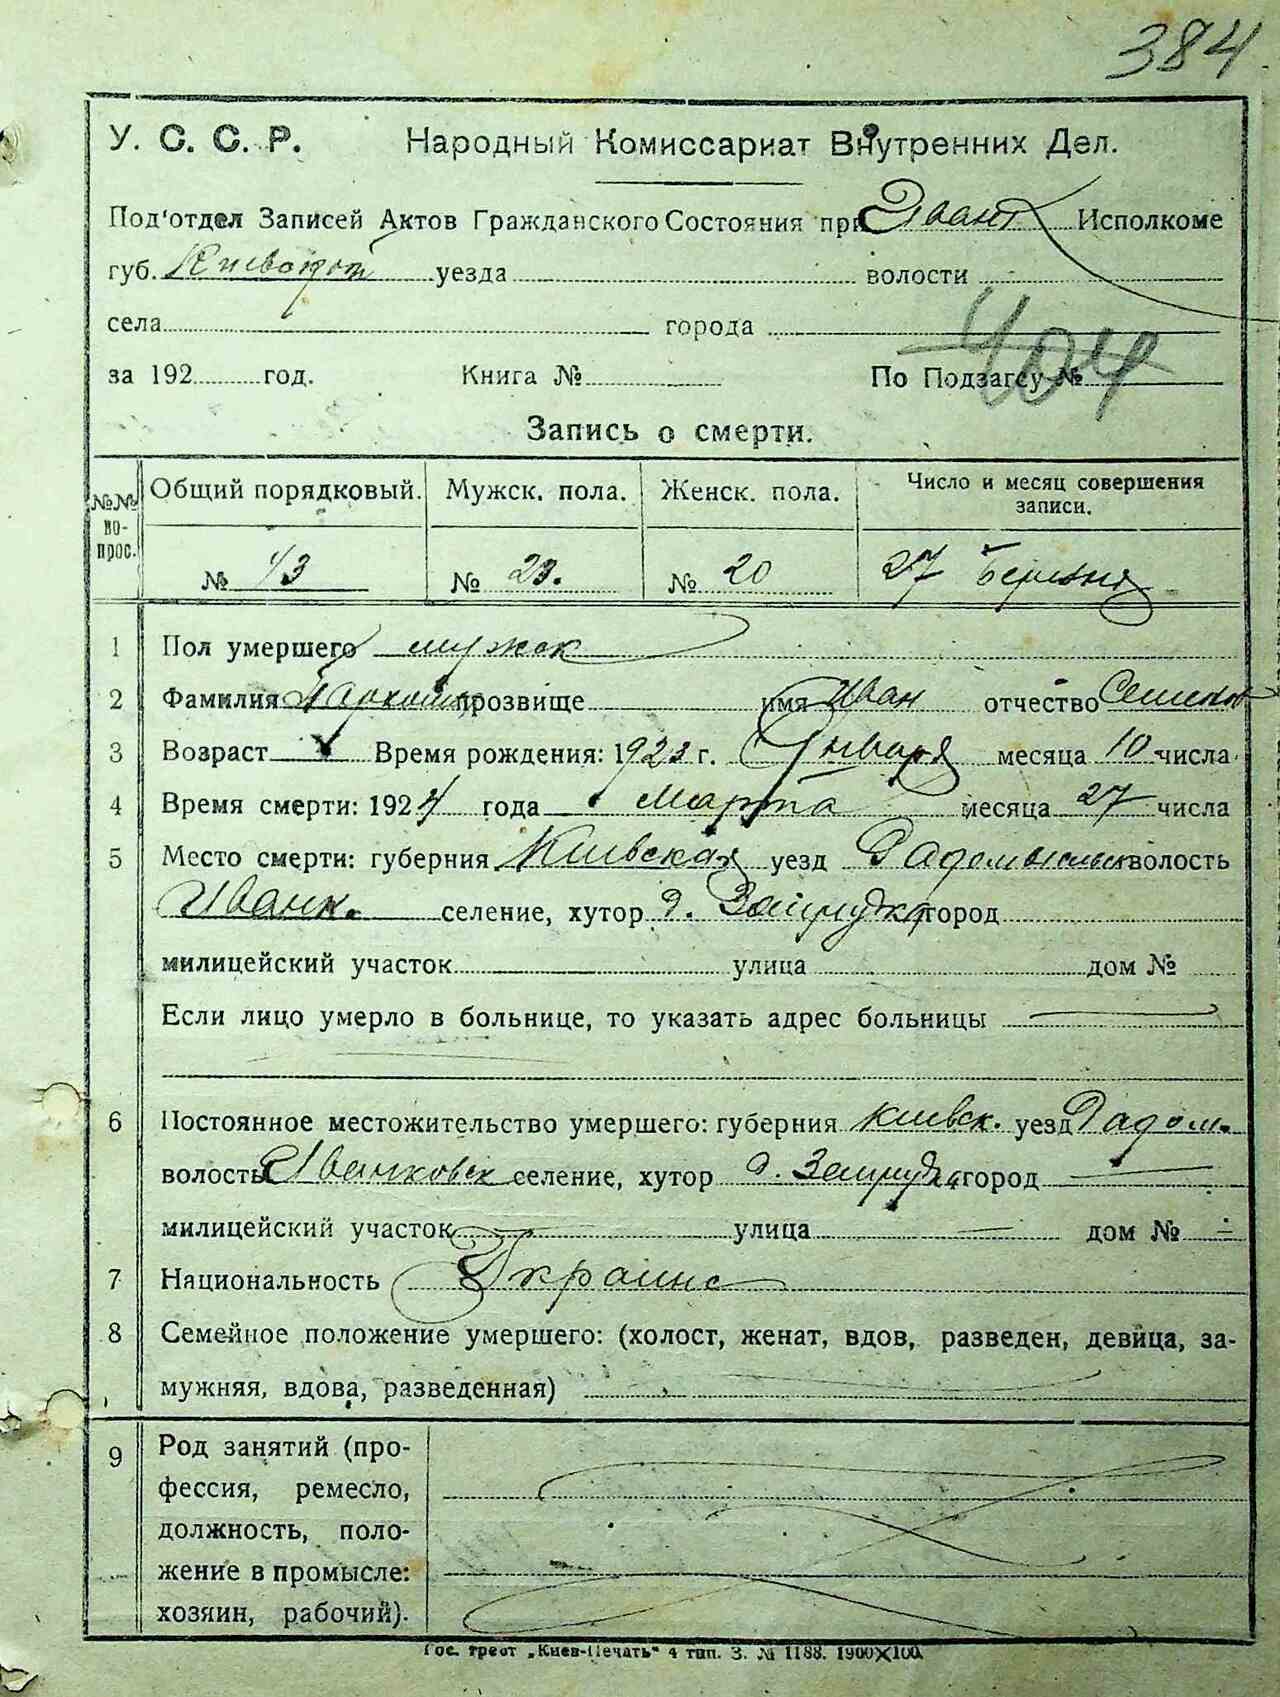 384
У. С. С. Р. Народный Комиссариат Внутренних Дел.
Под'отдел Записей Актов Гражданского Состояния при Исполкоме
губ. уезда волости
села города
за 192 год. Книга № По Подзагсу № 404
Запись о смерти.
№№ вопрос. Общий порядковый. Мужск. пола. Женск. пола. Число и месяц совершения записи.
№ 43 № 23. № 20 27 Березня
1 Пол умершего мужск
2 Фамилия прозвище имя Иван отчество Семенов
3 Возраст Время рождения: 1923 г. Января месяца 10 числа
4 Время смерти: 1924 года Марта месяца 27 числа
5 Место смерти: губерния Киевская уезд Радомысльск волость
Иванк. селение, хутор д. Запрудка город
милицейский участок улица дом №
Если лицо умерло в больнице, то указать адрес больницы
6 Постоянное местожительство умершего: губерния Киевск. уезд Радом.
волость Иванковск селение, хутор д. Запрудка город
милицейский участок улица дом №
7 Национальность Украинс
8 Семейное положение умершего: (холост, женат, вдов, разведен, девица, за-
мужняя, вдова, разведенная)
9 Род занятий (про-
фессия, ремесло,
должность, поло-
жение в промысле:
хозяин, рабочий).
Гос. трест „Киев-Печать" 4 тип. З. № 1188. 1900×100.